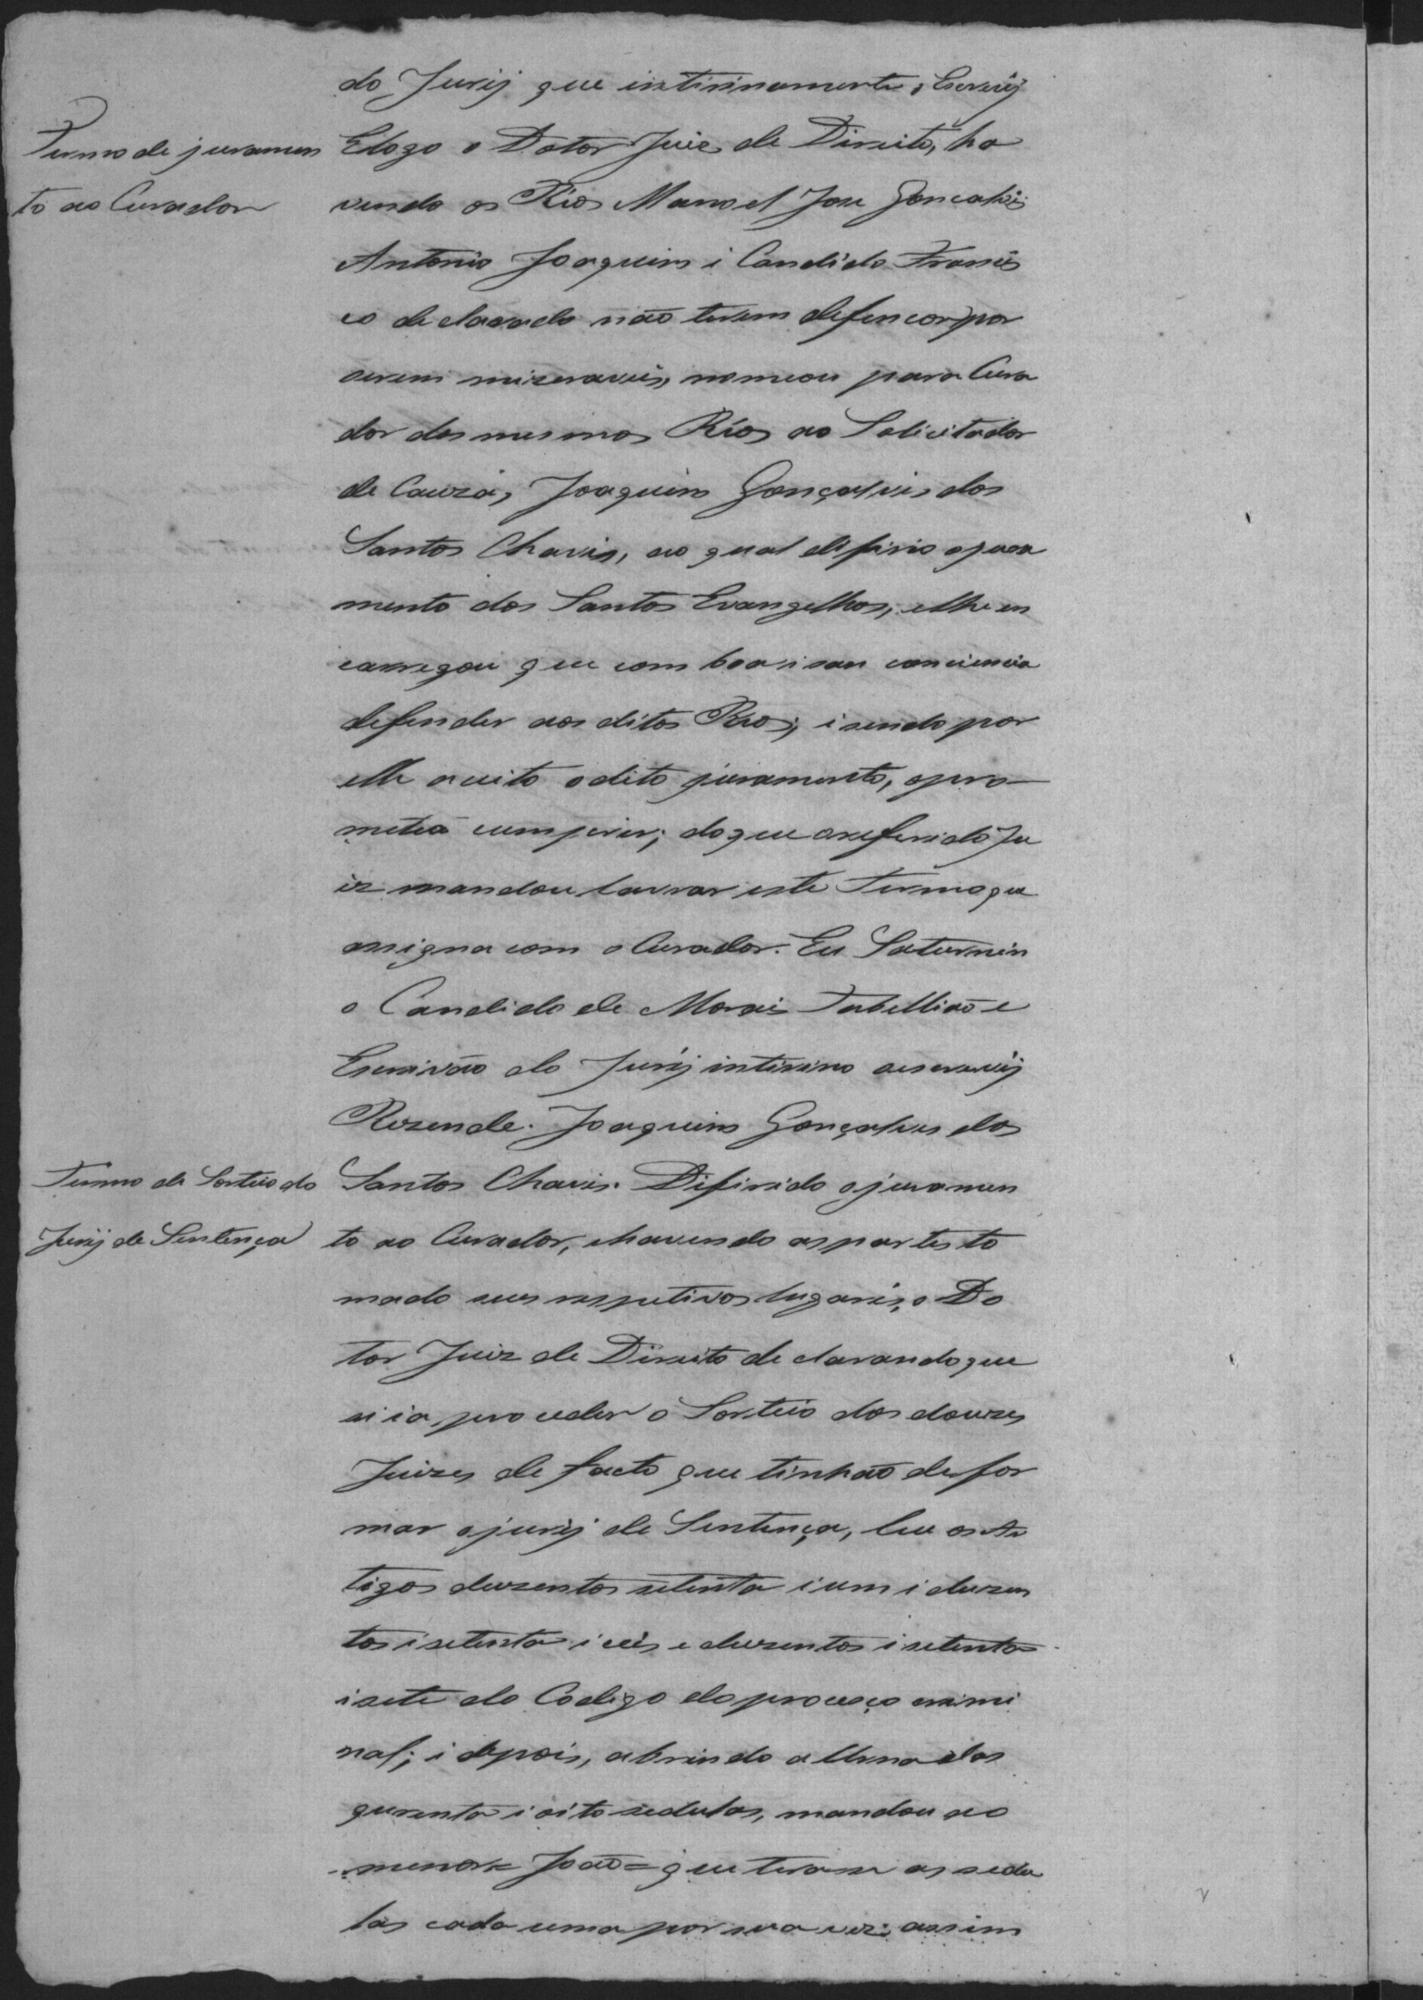 do Jurij que intirinamente, Escrevij
Termo de juramen
to ao Curador
Elogo o Dotor Juiz de Direito, ha
vendo os Rios Manoel Jose Goncalvis
Antonio Joaquim i Candido Francis
co declarado não terem defencor por
serem mizeraveis, nomeou para Cura
dor dos mesmos Rios ao Solicitador
de Cauzas, Joaquim Gonçalvis dos
Santos Chavis, ao qual difirio o jura
mento dos Santos Evangelhos, elhe en
carregou que com boa i san conciencia
defender aos ditos Rios; i sendo por
elle aceito o dito juramento, o pro-
meteo cumprir; do que o referido Ju
iz mandou lavrar este Termo que
assigna com o Curador. Eu Saturnin
o Candido de Morais Tabellião e
Escrivão do Jurij intirino o escrevij
Rezende. Joaquim Gonçalves dos
Termo de Sorteio do
Jurij de Sentença
Santos Chavis. Difirido o juramen
to ao Curador, ehavendo as partes to
mado seus respetivos lugaris, o Do
tor Juiz de Direito declarando que
si ia proceder o Sorteio dos douzes
Juizes de facto que tinhão de for
mar o jurij de Sentença, leu os Ar
tigos duzentos setenta i um i duzen
tos i setenta i ceis e duzentos i setenta
i sete do Codigo do proceço crimi
nal; i depois, abrindo a Urna das
qurenta i oito sedulas, mandou ao
menor = João = que tirase as sedu
las cada uma por sua vez; assim